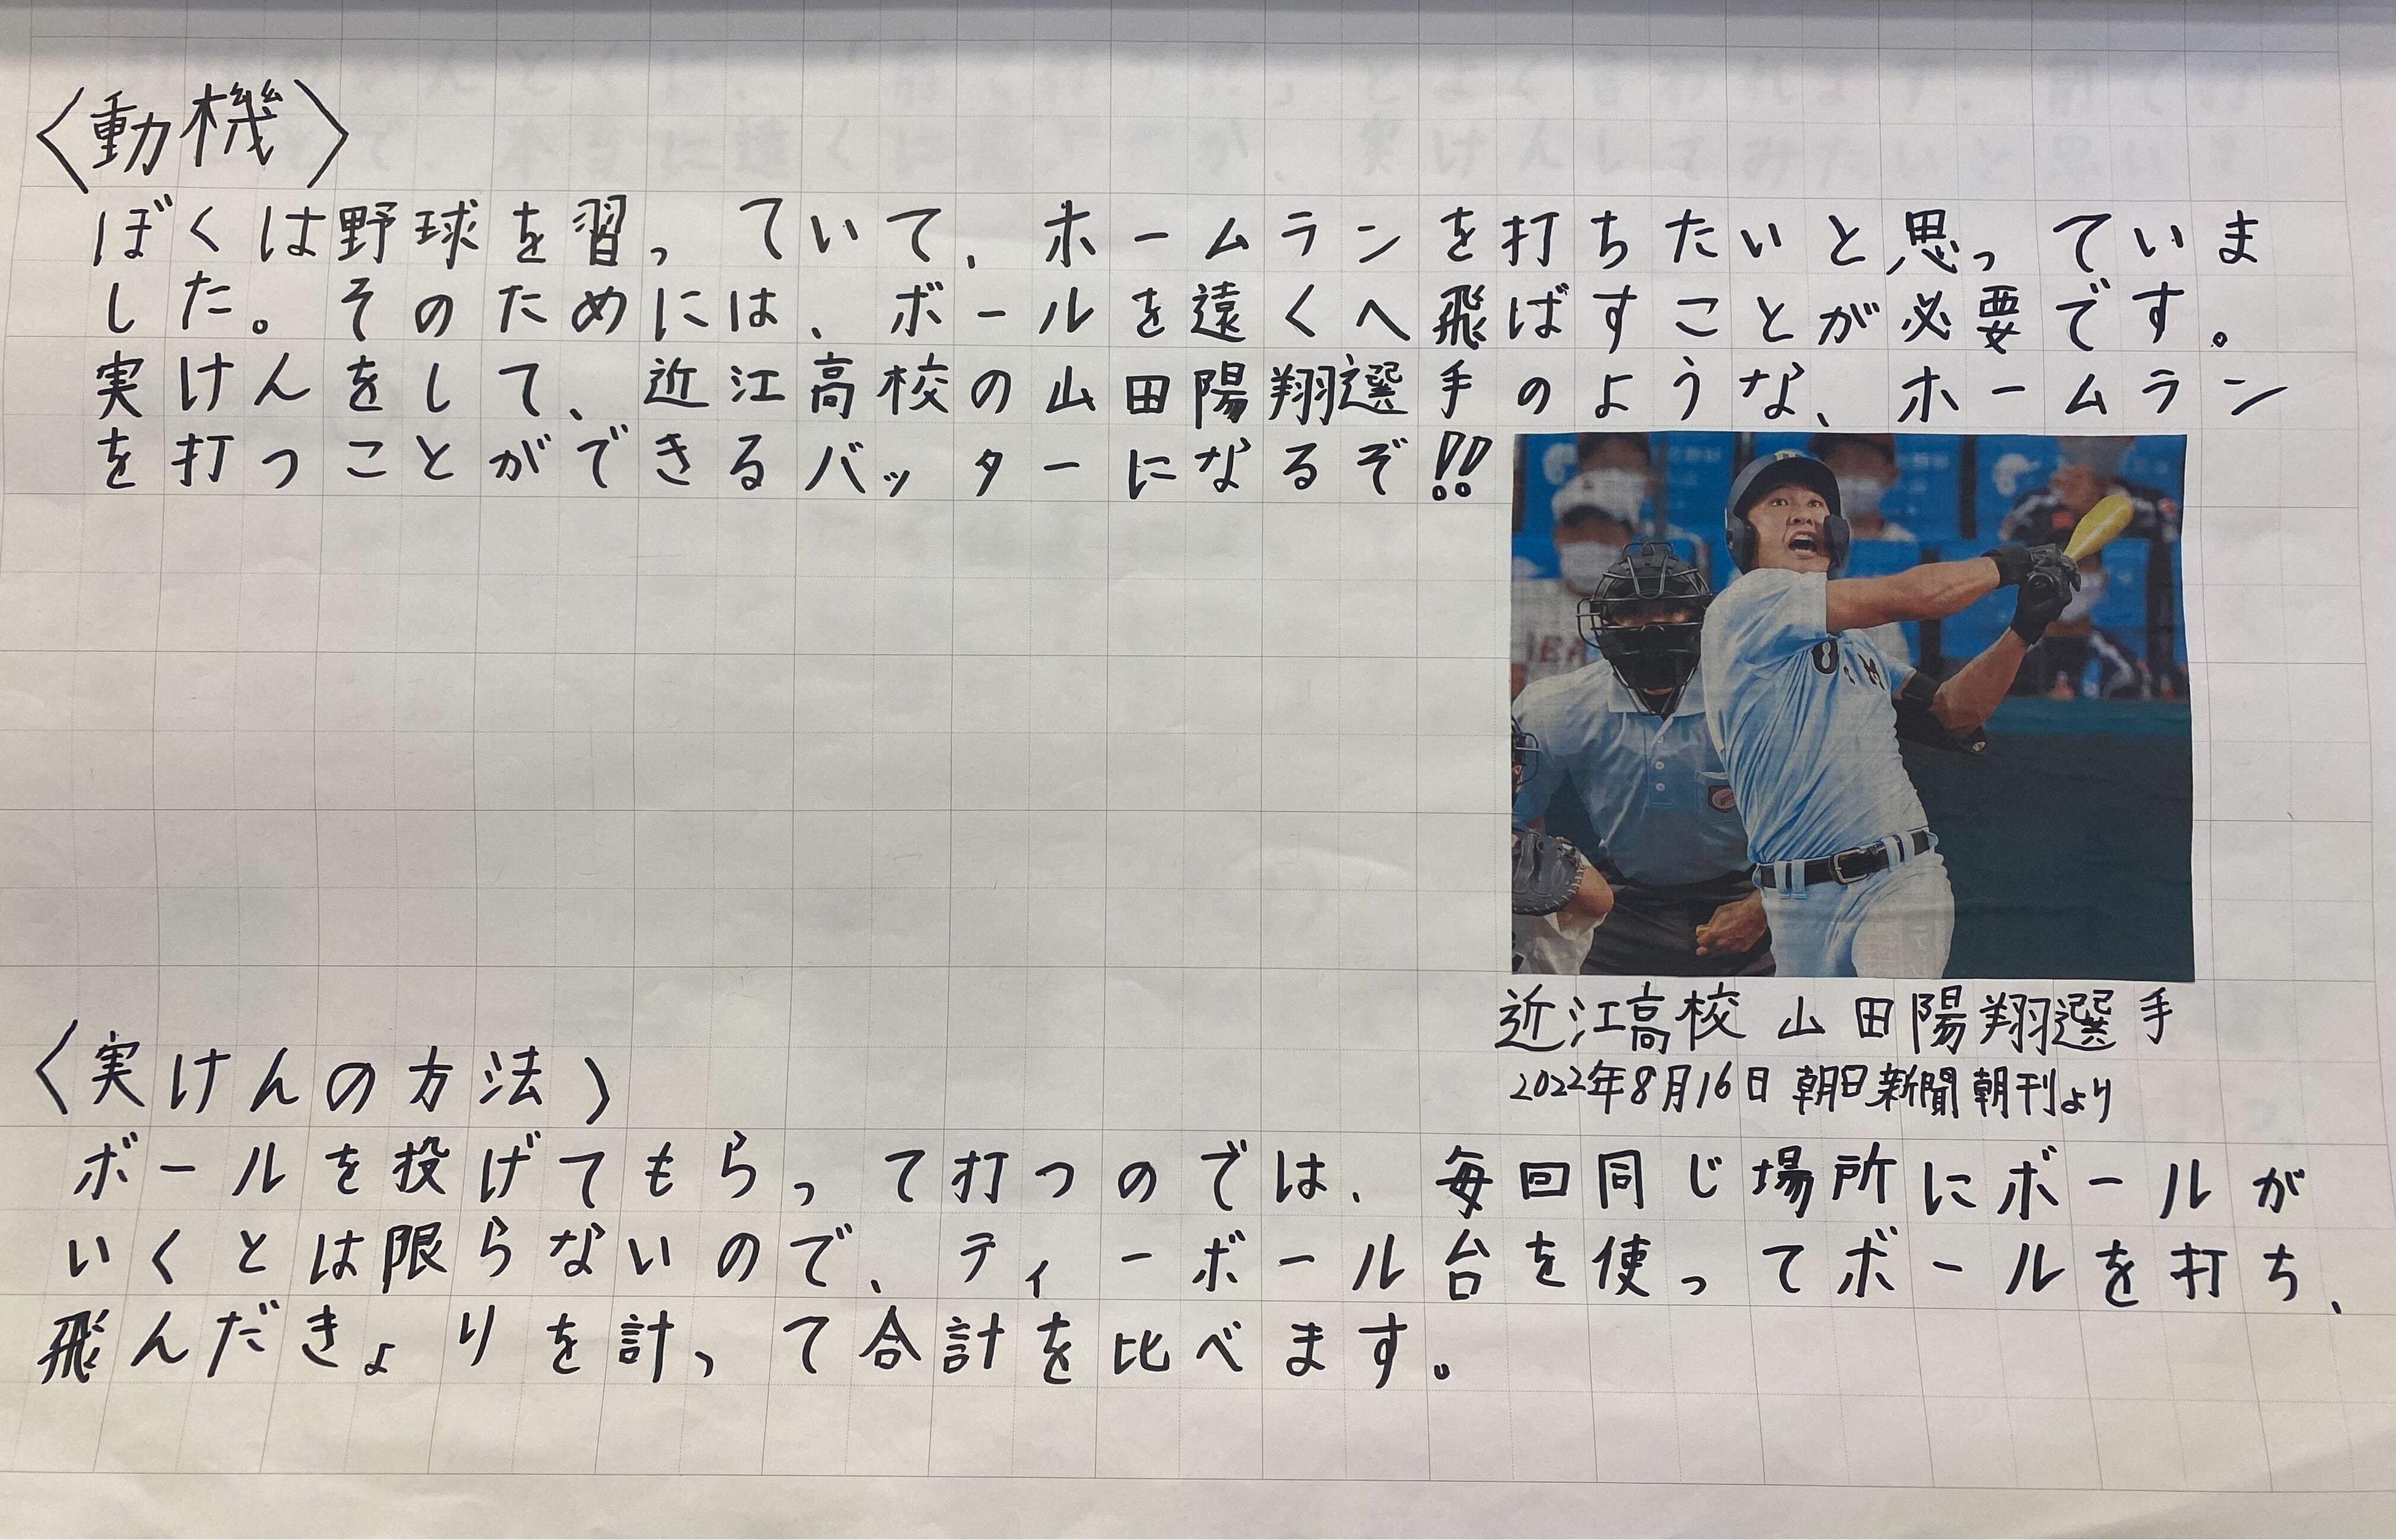 〈動機〉
ぼくは野球を習っていて、ホームランを打ちたいと思っていま
した。そのためには、ボールを遠くへ飛ばすことが必要です。
実けんをして、近江高校の山田陽翔選手のような、ホームラン
を打つことができるバッターになるぞ!!
近江高校 山田陽翔選手
2022年8月16日 朝日新聞朝刊より
〈実けんの方法〉
ボールを投げてもらって打つのでは、毎回同じ場所にボールが
いくとは限らないので、ティーボール台を使ってボールを打ち、
飛んだきょりを計って合計を比べます。